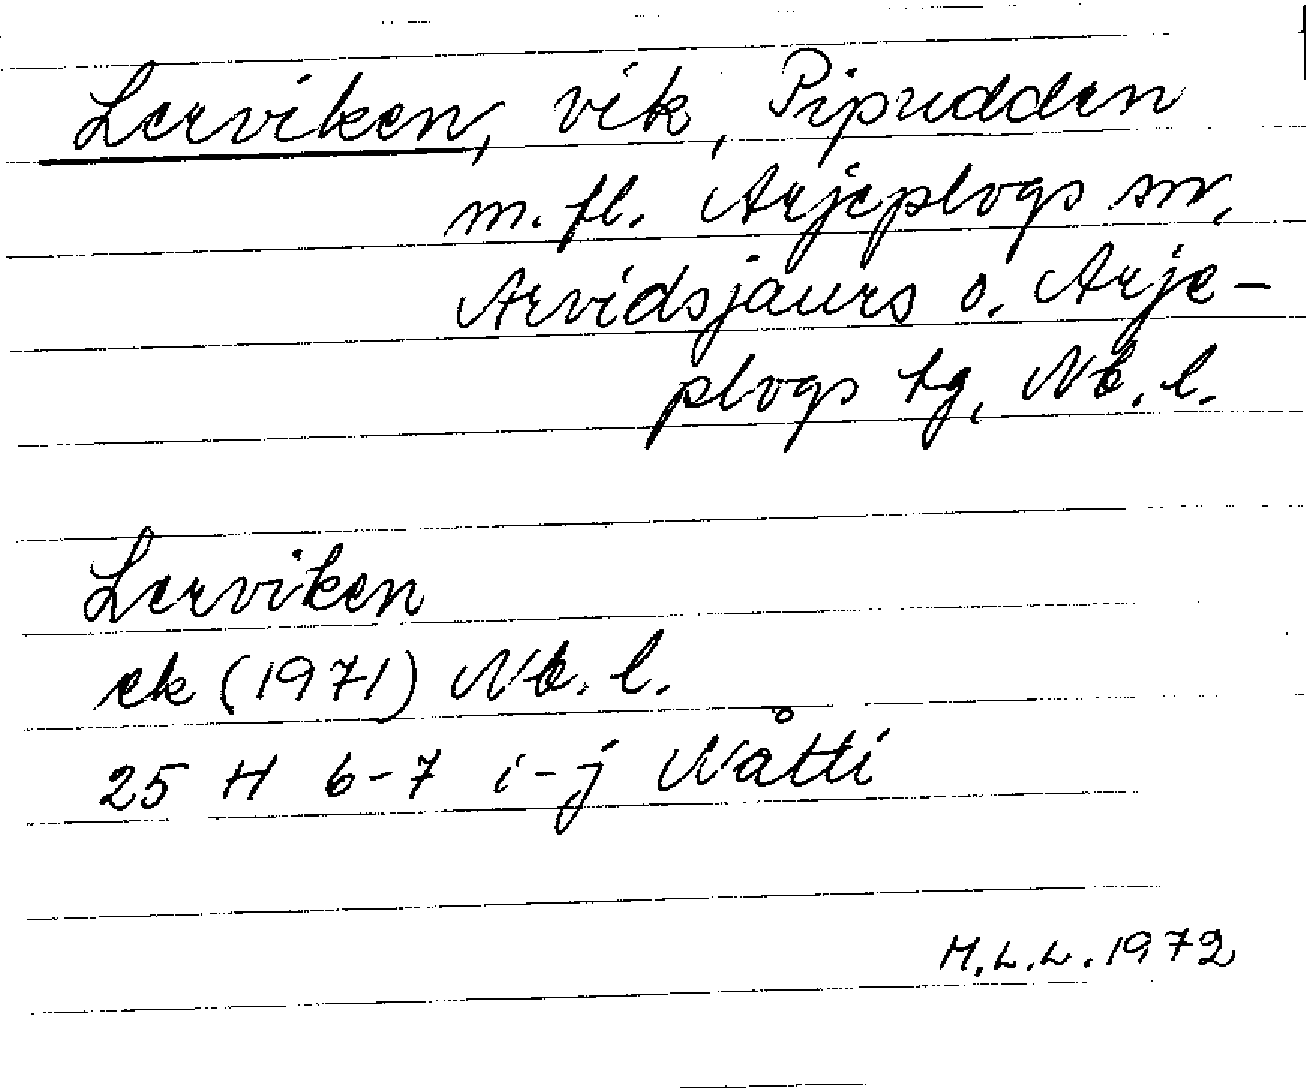 Lerviken, vik, Pipudden
m. fl. Arjeplogs sn,
Arvidsjaurs o. Arje-
plogs tg, Nb. l.
Lerviken
ek (1971) Nb. l.
25 H 6-7 i-j Nåtti
M.L.L. 1972